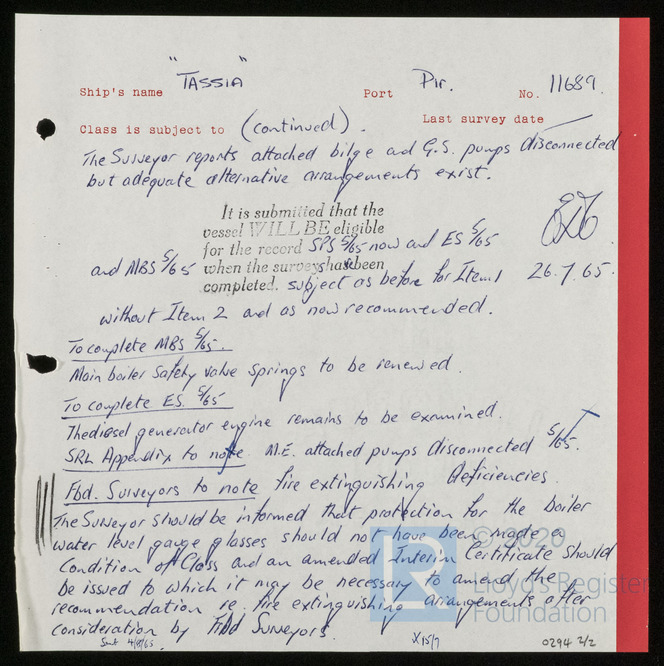 Ship's name "TASSIA" Port Pir. No. 11689.
Class is subject to (continued). Last survey date —
The Surveyor reports attached bilge and G.S. pumps disconnected
but adequate alternative arrangements exist.
It is submitted that the
vessel WILL BE eligible
for the record SPS 5/65 now and ES 5/65
and MBS 5/65 when the surveys have been
completed. subject as before for Item 1 26.7.65.
without Item 2 and as now recommended.
To complete MBS 5/65.
Main boiler safety valve springs to be renewed.
To complete ES. 5/65
The diesel generator engine remains to be examined.
SRL Appendix to note. M.E. attached pumps disconnected 5/65.
Fbd. Surveyors to note fire extinguishing deficiencies.
The Surveyor should be informed that protection for the boiler
water level gauge glasses should not have been made a
Condition of Class and an amended Interim Certificate should
be issued to which it may be necessary to amend the
recommendation re. fire extinguishing arrangements after
consideration by Fbd Surveyors.
X15/7 0294 2/2
© 2020
Lloyd's Register
Foundation